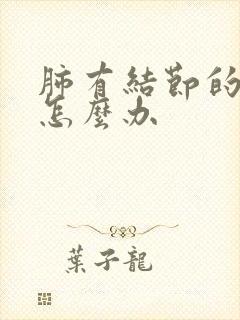 肺有結節的
怎麼办
葉子龍